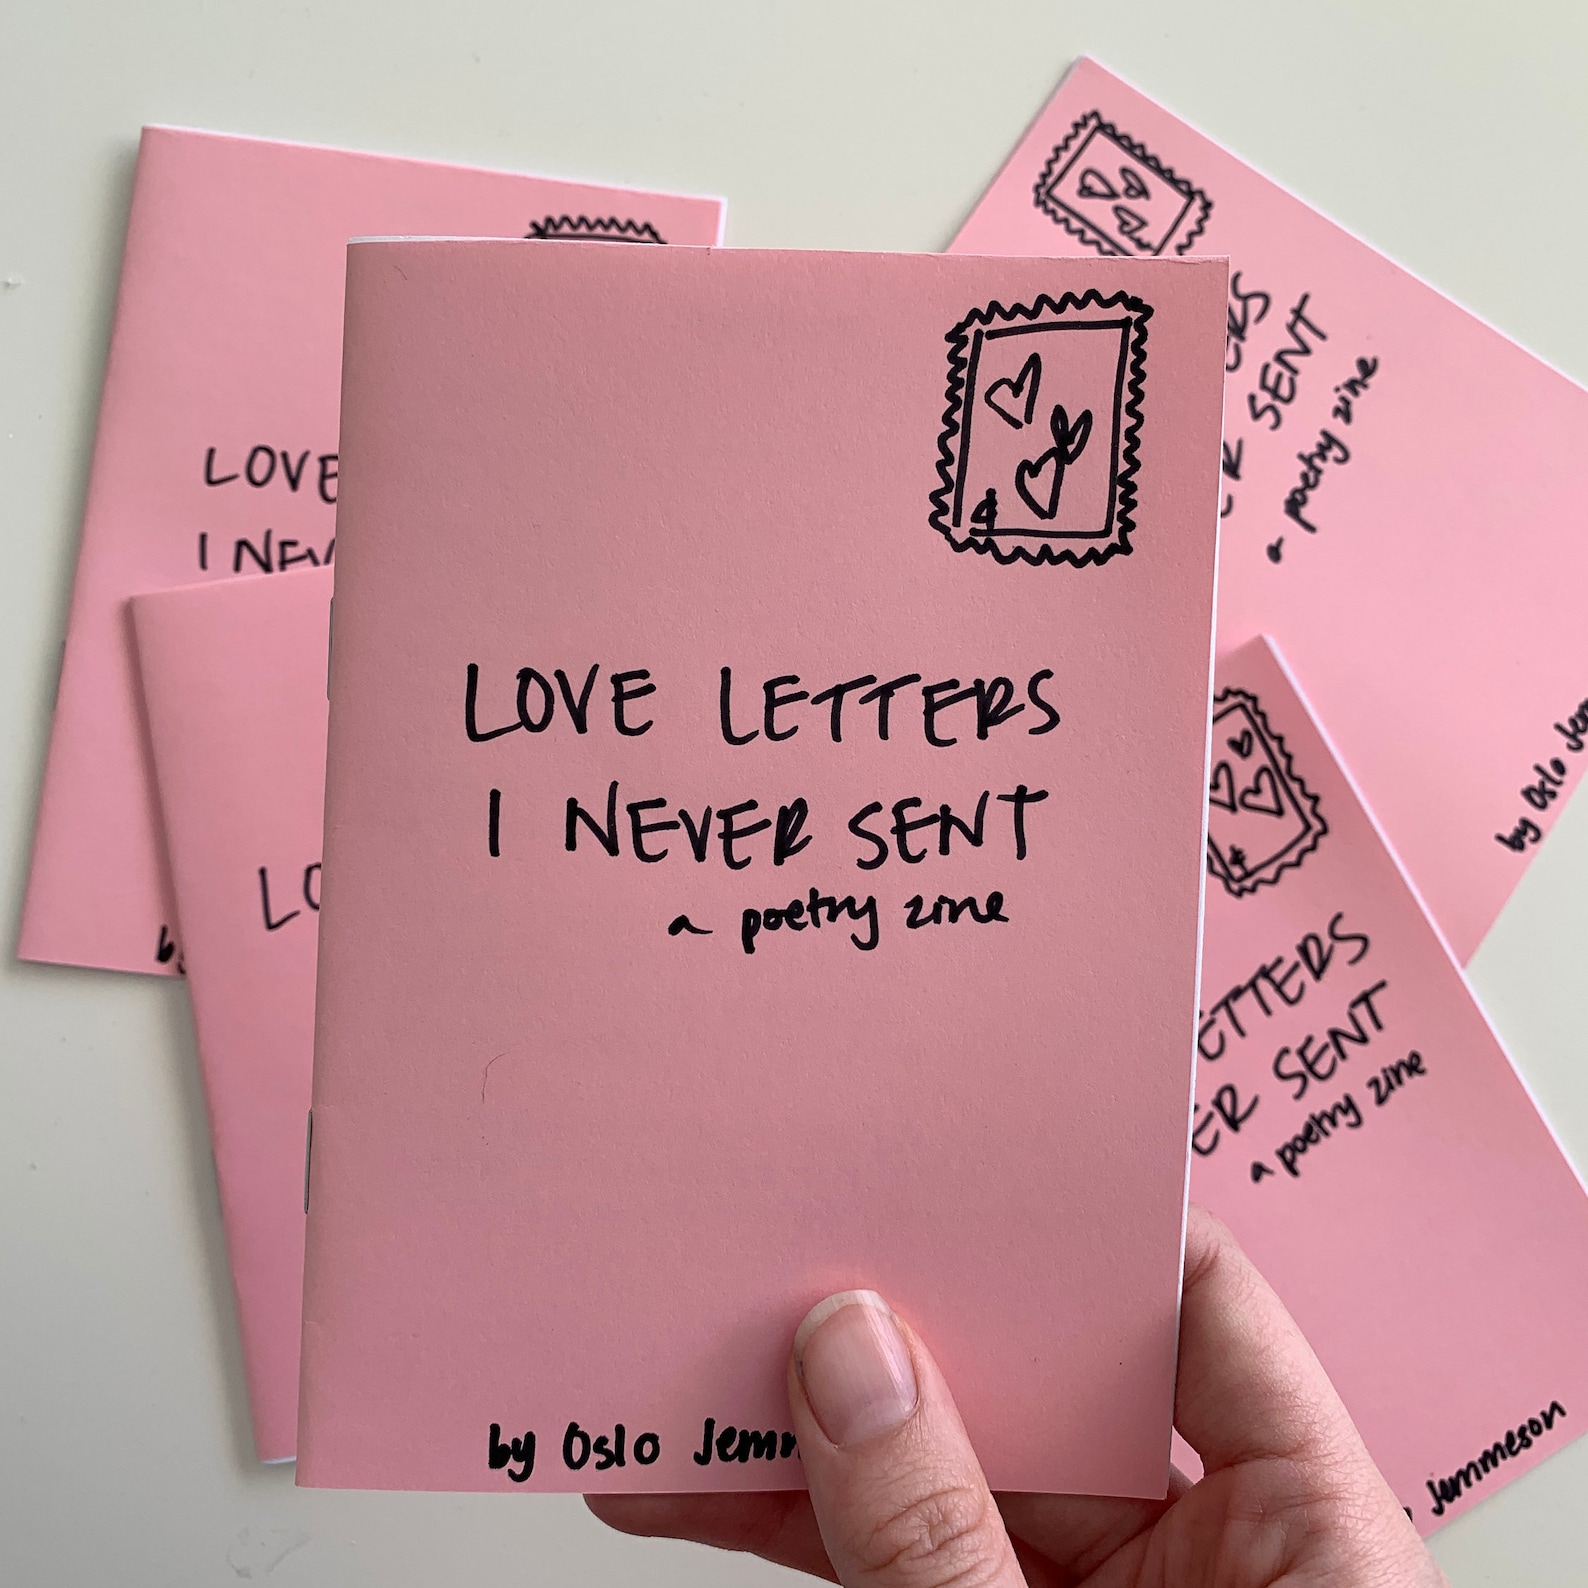 LOVE LETTERS
I NEVER SENT
a poetry zine
by Oslo Jemm
LOVE
I NEV
by
LO
ERS
ER SENT
a poetry zine
by Oslo Jem
ETTERS
ER SENT
a poetry zine
Jemmeson